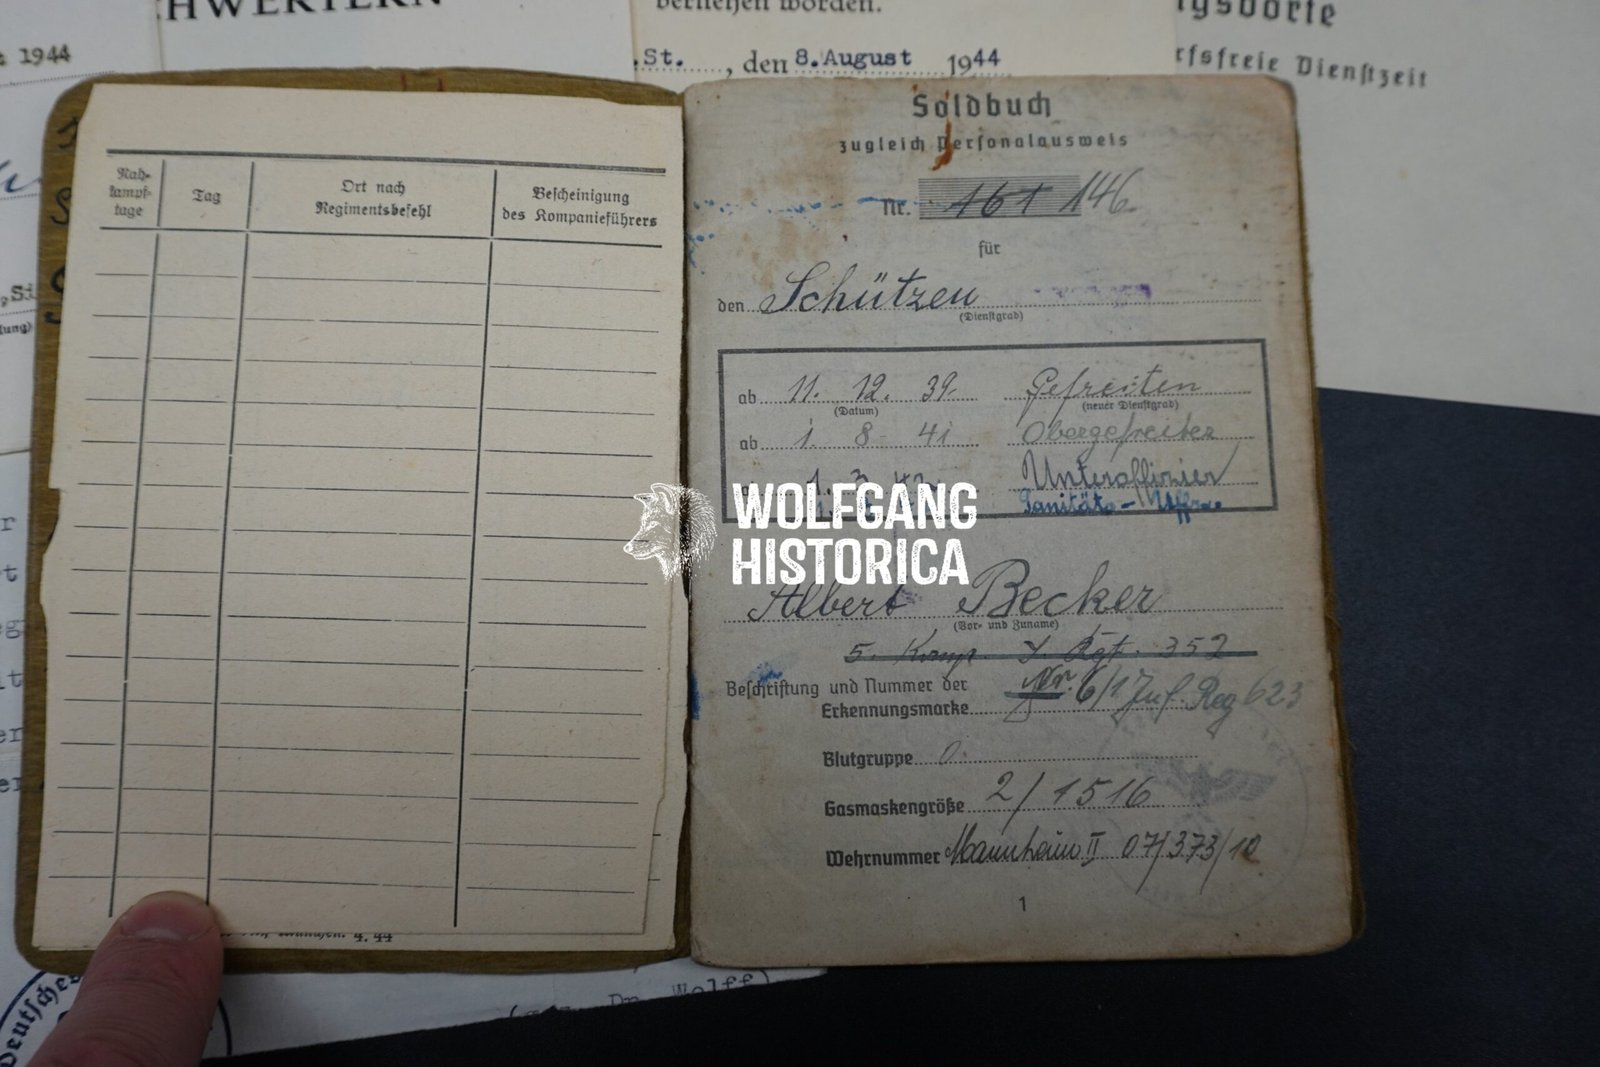 HWERTERN
1944
bernehen worden.
St. , den 8. August 1944
Dienstzeit
Nah-
kampf-
tage
Tag
Ort nach
Regimentsbefehl
Bescheinigung
des Kompanieführers
4. 44
Soldbuch
zugleich Personalausweis
Nr. 161 146
für
den Schützen
(Dienstgrad)
ab 11. 12. 39. Gefreiten
(Datum) (neuer Dienstgrad)
ab 1. 8 41 Obergefreiter
1. 3. 42. Unteroffizier
Sanitäts-Uffz.
WOLFGANG
HISTORICA
Albert Becker
(Vor- und Zuname)
5. Komp. J. Rgt. 352
Beschriftung und Nummer der
Erkennungsmarke Nr. 6/1 Inf. Reg 623
Blutgruppe 0.
Gasmaskengröße 2/1516
Wehrnummer Mannheim II 07/373/10
1
Deutsches
Dr. Wolff)